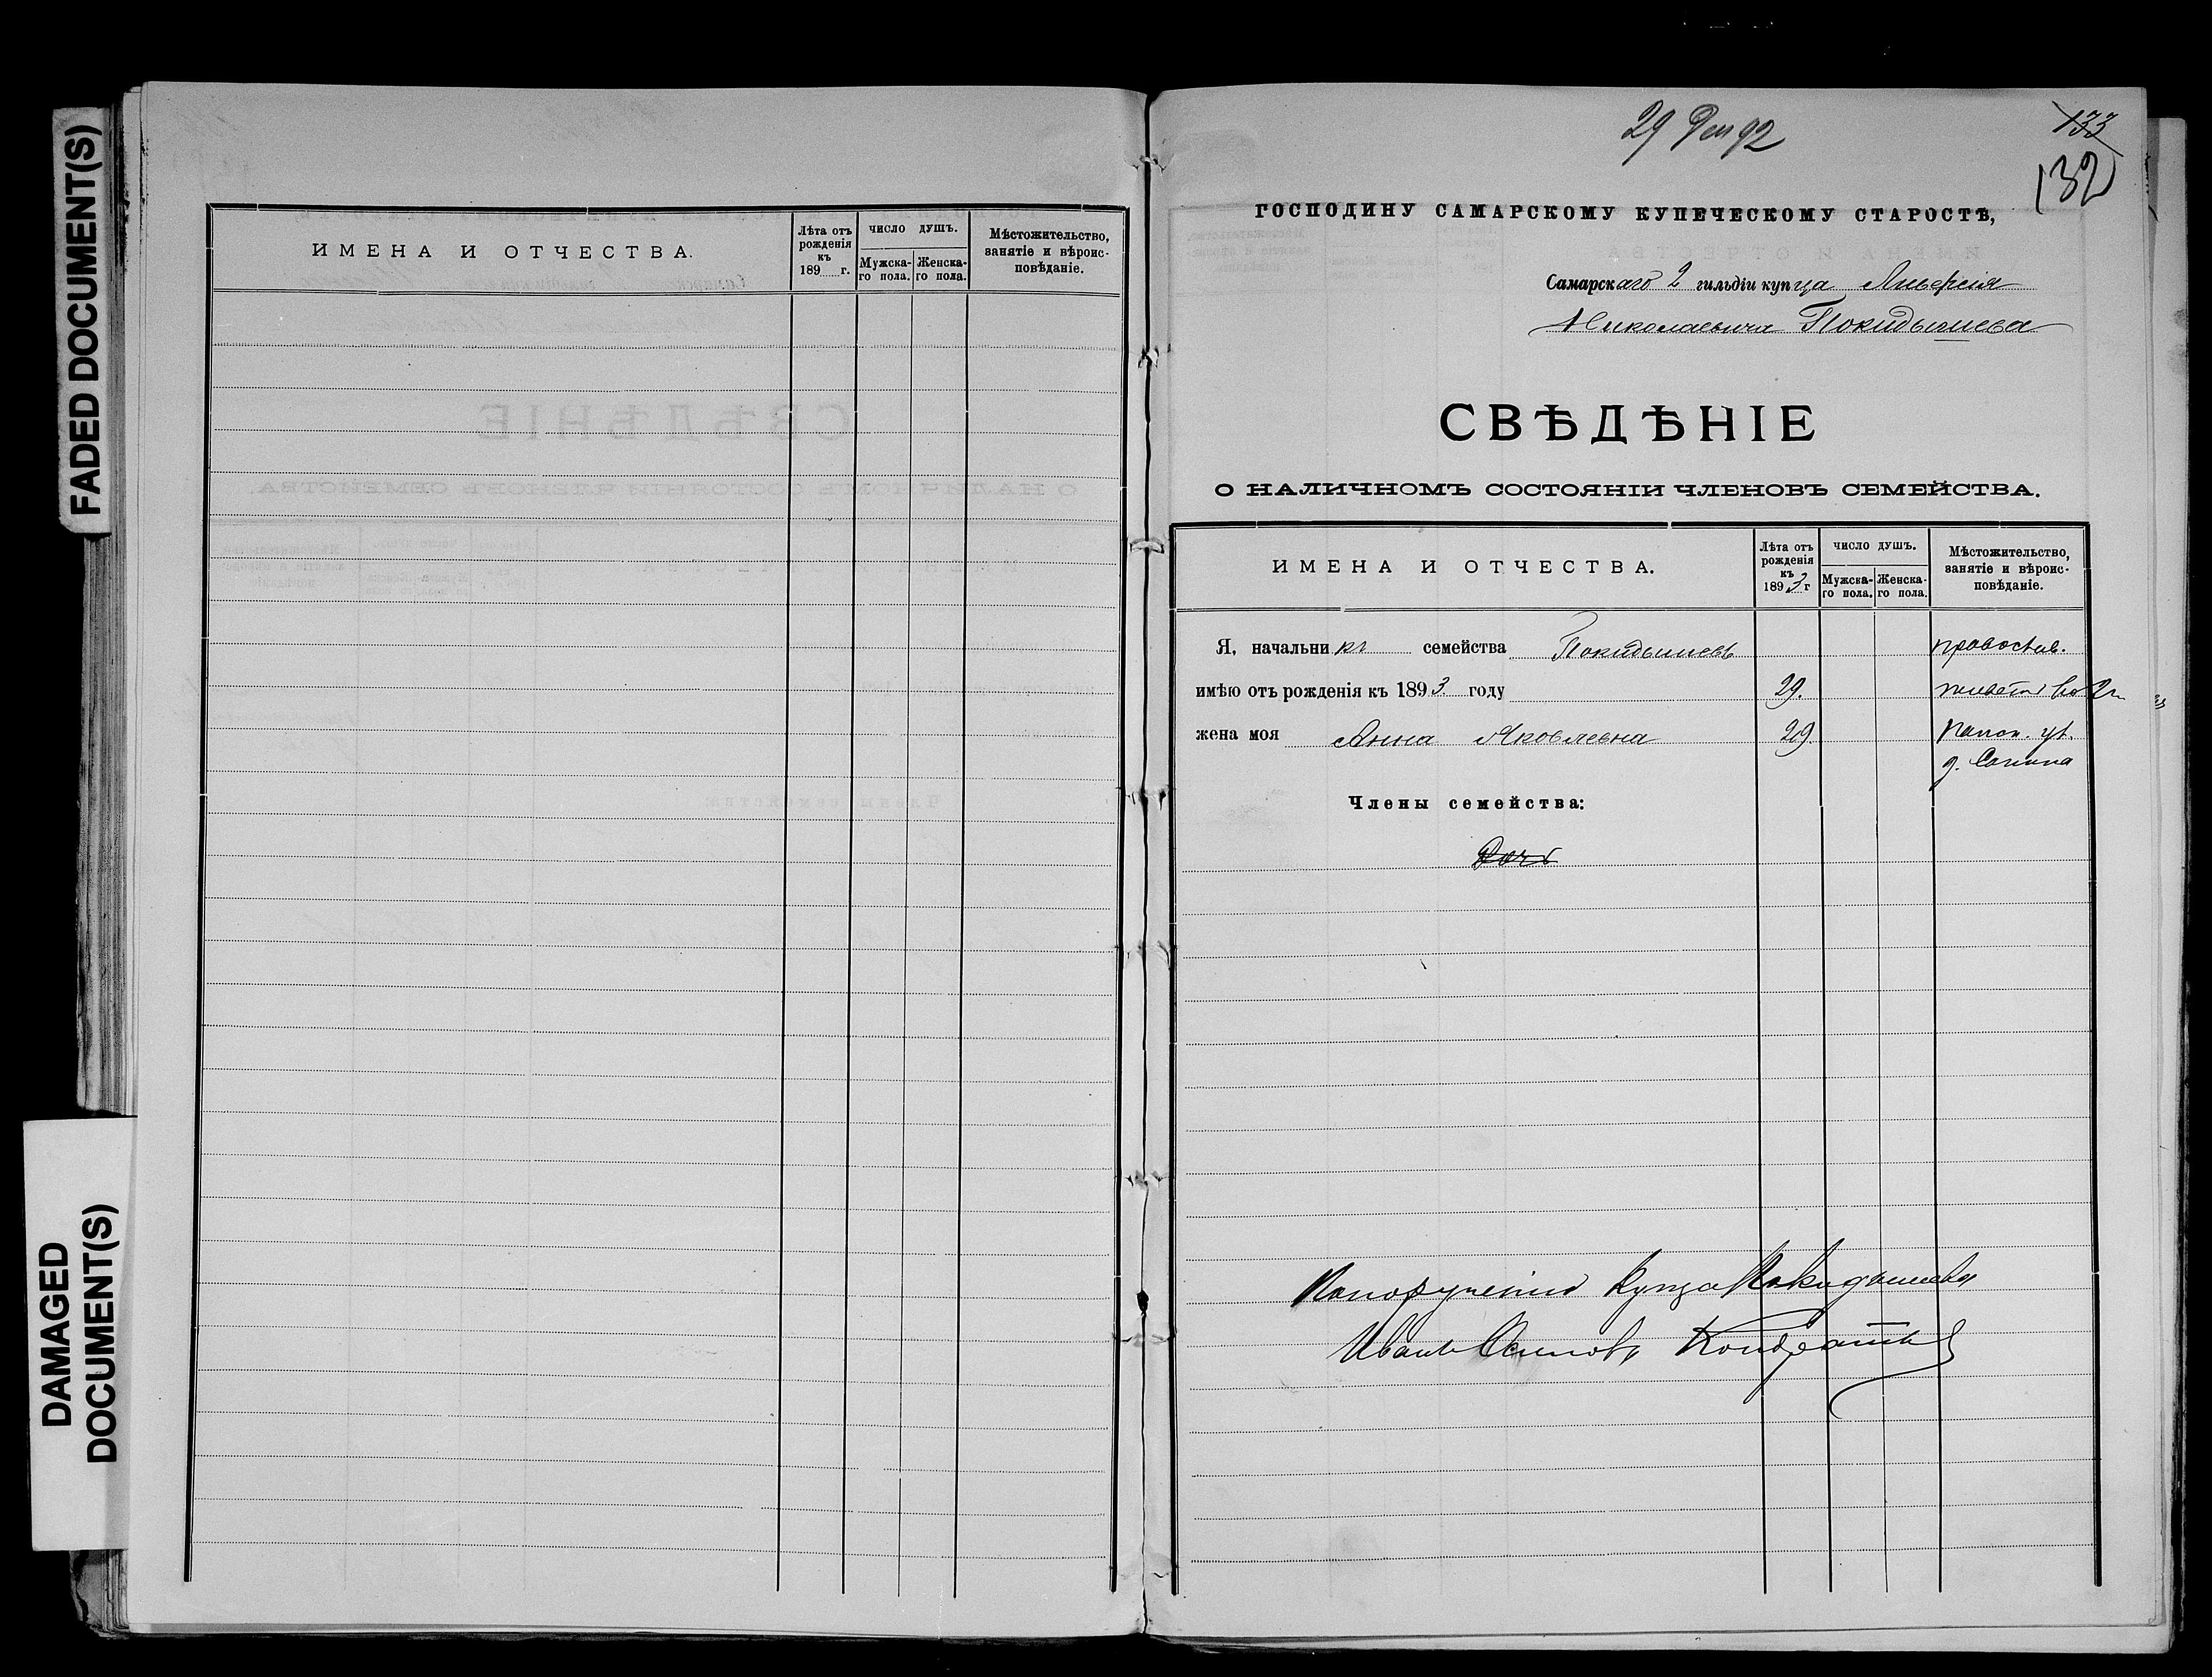 FADED DOCUMENT(S)
DAMAGED
DOCUMENT(S)
ИМЕНА И ОТЧЕСТВА.
Лѣта отъ рожденія къ 189 г.
ЧИСЛО ДУШЪ.
Мужска-го пола.
Женска-го пола.
Мѣстожительство, занятіе и вѣроис-повѣданіе.
29 Дек 92
133
132
ГОСПОДИНУ САМАРСКОМУ КУПЕЧЕСКОМУ СТАРОСТѢ,
Самарскаго 2 гильдіи купца
Николаевича Покидышева
СВѢДѢНІЕ
О НАЛИЧНОМЪ СОСТОЯНІИ ЧЛЕНОВЪ СЕМЕЙСТВА.
ИМЕНА И ОТЧЕСТВА.
Лѣта отъ рожденія къ 1893 г
ЧИСЛО ДУШЪ.
Мужска-го пола.
Женска-го пола.
Мѣстожительство, занятіе и вѣроис-повѣданіе.
Я, начальникъ семейства Покидышевъ православ.
имѣю отъ рожденія къ 1893 году 29. живетъ во 2
жена моя Анна Яковлевна 29
д. Санина
Члены семейства:
Дочь
По порученію Купца Покидышева
Иванъ Осиповъ Кондратьев